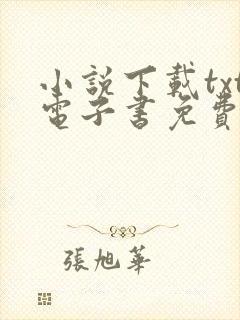 小說下載txt
電子書免費
張旭華